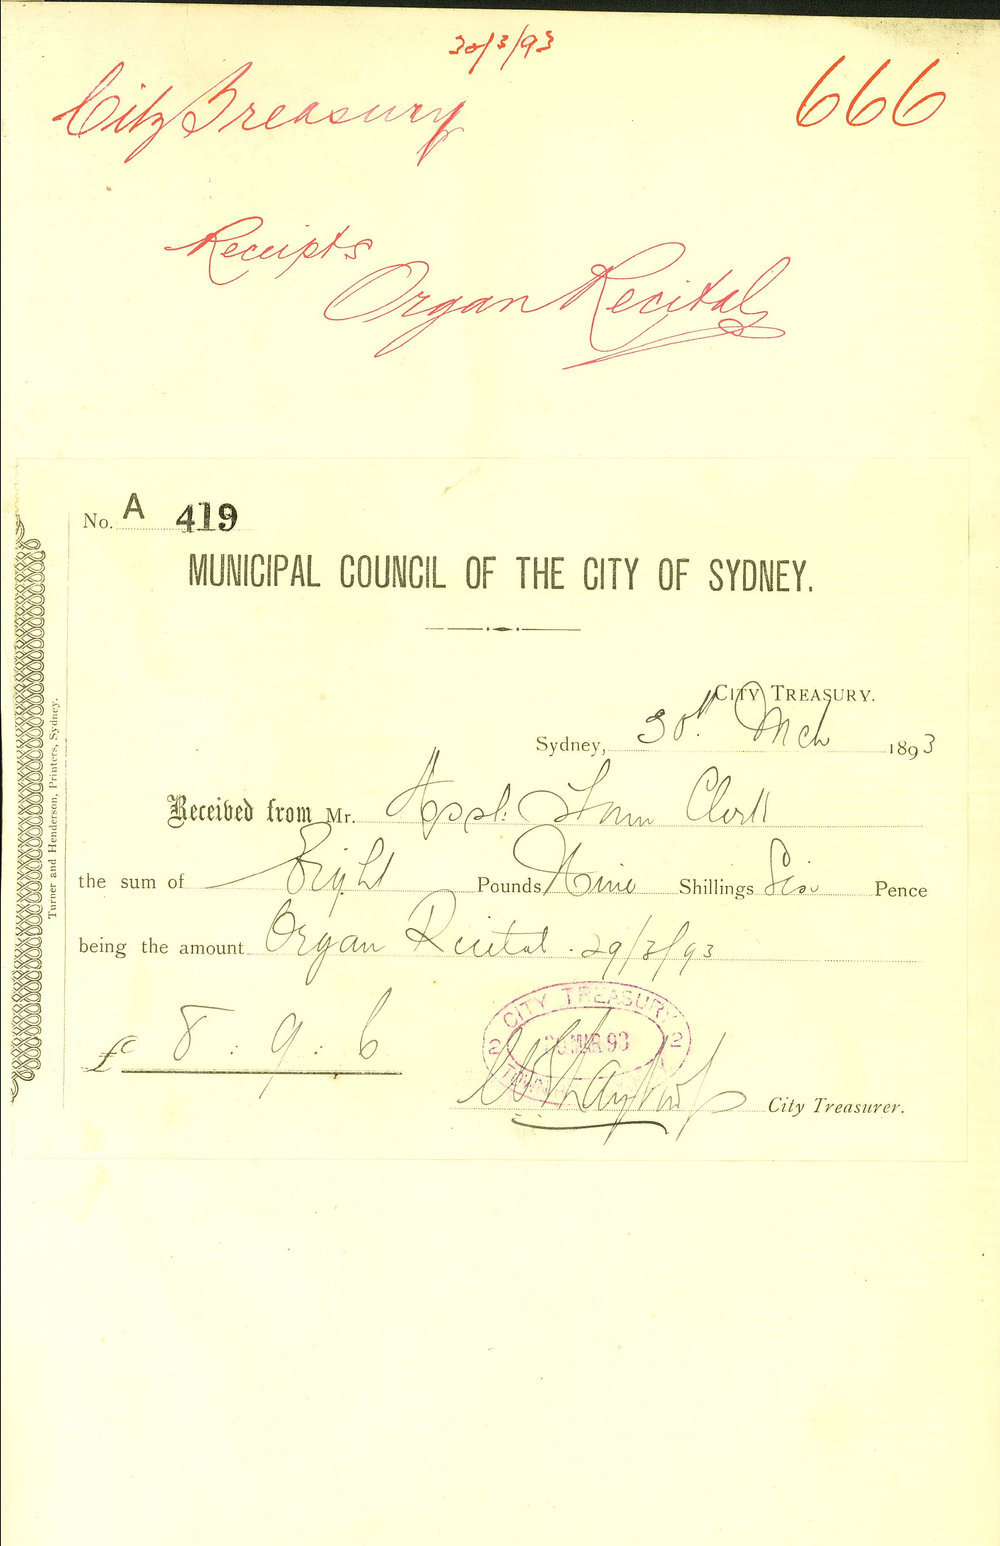 30/3/93
City Treasury
666
Receipts
Organ Recital
No. A 419
MUNICIPAL COUNCIL OF THE CITY OF SYDNEY.
CITY TREASURY.
Sydney, 30th Mch 1893
Received from Mr. Asst. Town Clerk
the sum of Eight Pounds Nine Shillings Six Pence
being the amount Organ Recital. 29/3/93
£ 8 : 9 : 6
CITY TREASURY
2 MAR 93 2
TOWN
City Treasurer.
Turner and Henderson, Printers, Sydney.